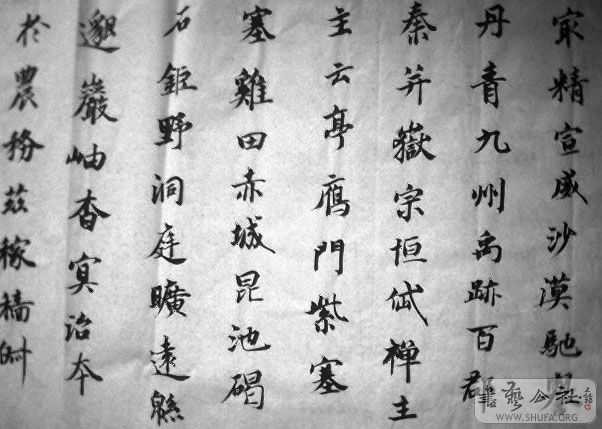 㝡精宣威沙漠馳
丹青九州禹跡百郡
秦并嶽宗恒岱禪主
主云亭鴈門紫塞
塞雞田赤城昆池碣
石鉅野洞庭曠遠緜
邈巖岫杳冥治本
於農務茲稼穡
書藝公社
WWW.SHUFA.ORG